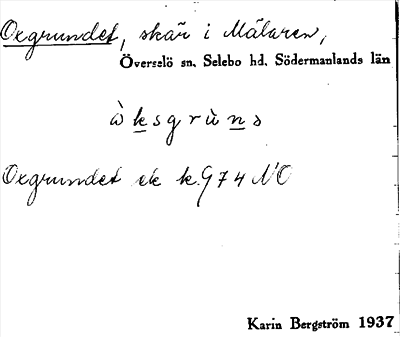 Oxgrundet, skär i Mälaren,
Överselö sn, Selebo hd, Södermanlands län
ò k s g r ù n s
Oxgrundet ek k. G74 NO
Karin Bergström 1937